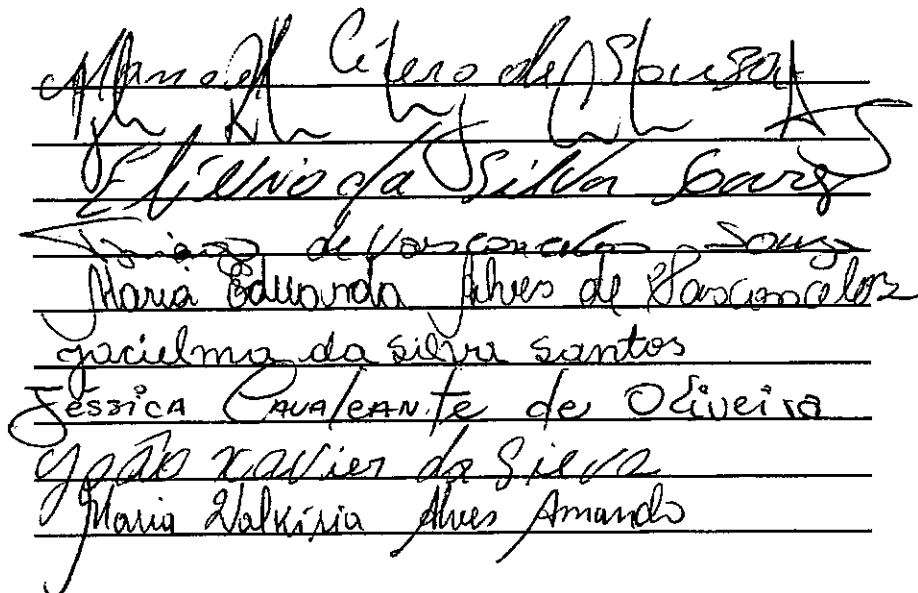 Manoel Cícero de Souza
Elienio da Silva Soares
de Vasconcelos Souza
Maria Eduarda Alves de Vasconcelos
Jacielma da Silva Santos
Jéssica Cavalcante de Oliveira
João Xavier da Silva
Maria Valkíria Alves Amando